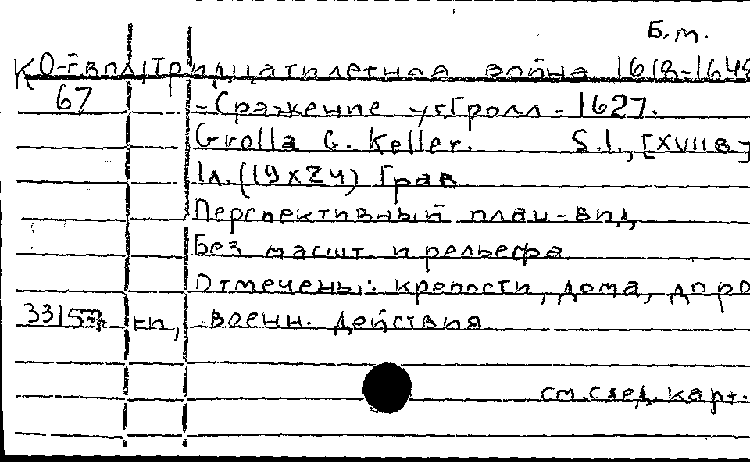 Б.м.
К 0-Гвол/Тридцатилетная война 1618-1648
67 -Сражение у г.Гролл-1627.
Grolla G. Keller. S.l., [XVII в]
1л.(19х24) Грав
Перспективный план-вид
Без масшт. и рельефа
Отмечены: крепости, дома, доро
военн. действия
см.след.карт.